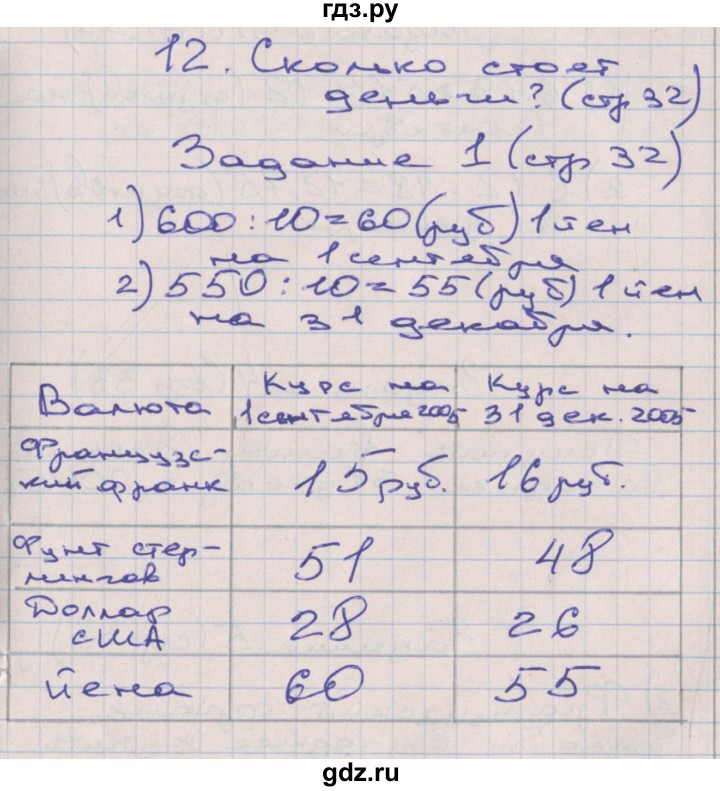 гдз.ру
12. Сколько стоят
деньги? (стр 32)
Задание 1 (стр 32)
1) 600 : 10 = 60 (руб) 1 йен
на 1 сентября
2) 550 : 10 = 55 (руб) 1 йен
на 31 декабря.
Валюта Курс на 1 сентября 2005 Курс на 31 дек. 2005
Французс-
кий франк 15 руб. 16 руб.
Фунт стер-
лингов 51 48
Доллар
США 28 26
йена 60 55
gdz.ru